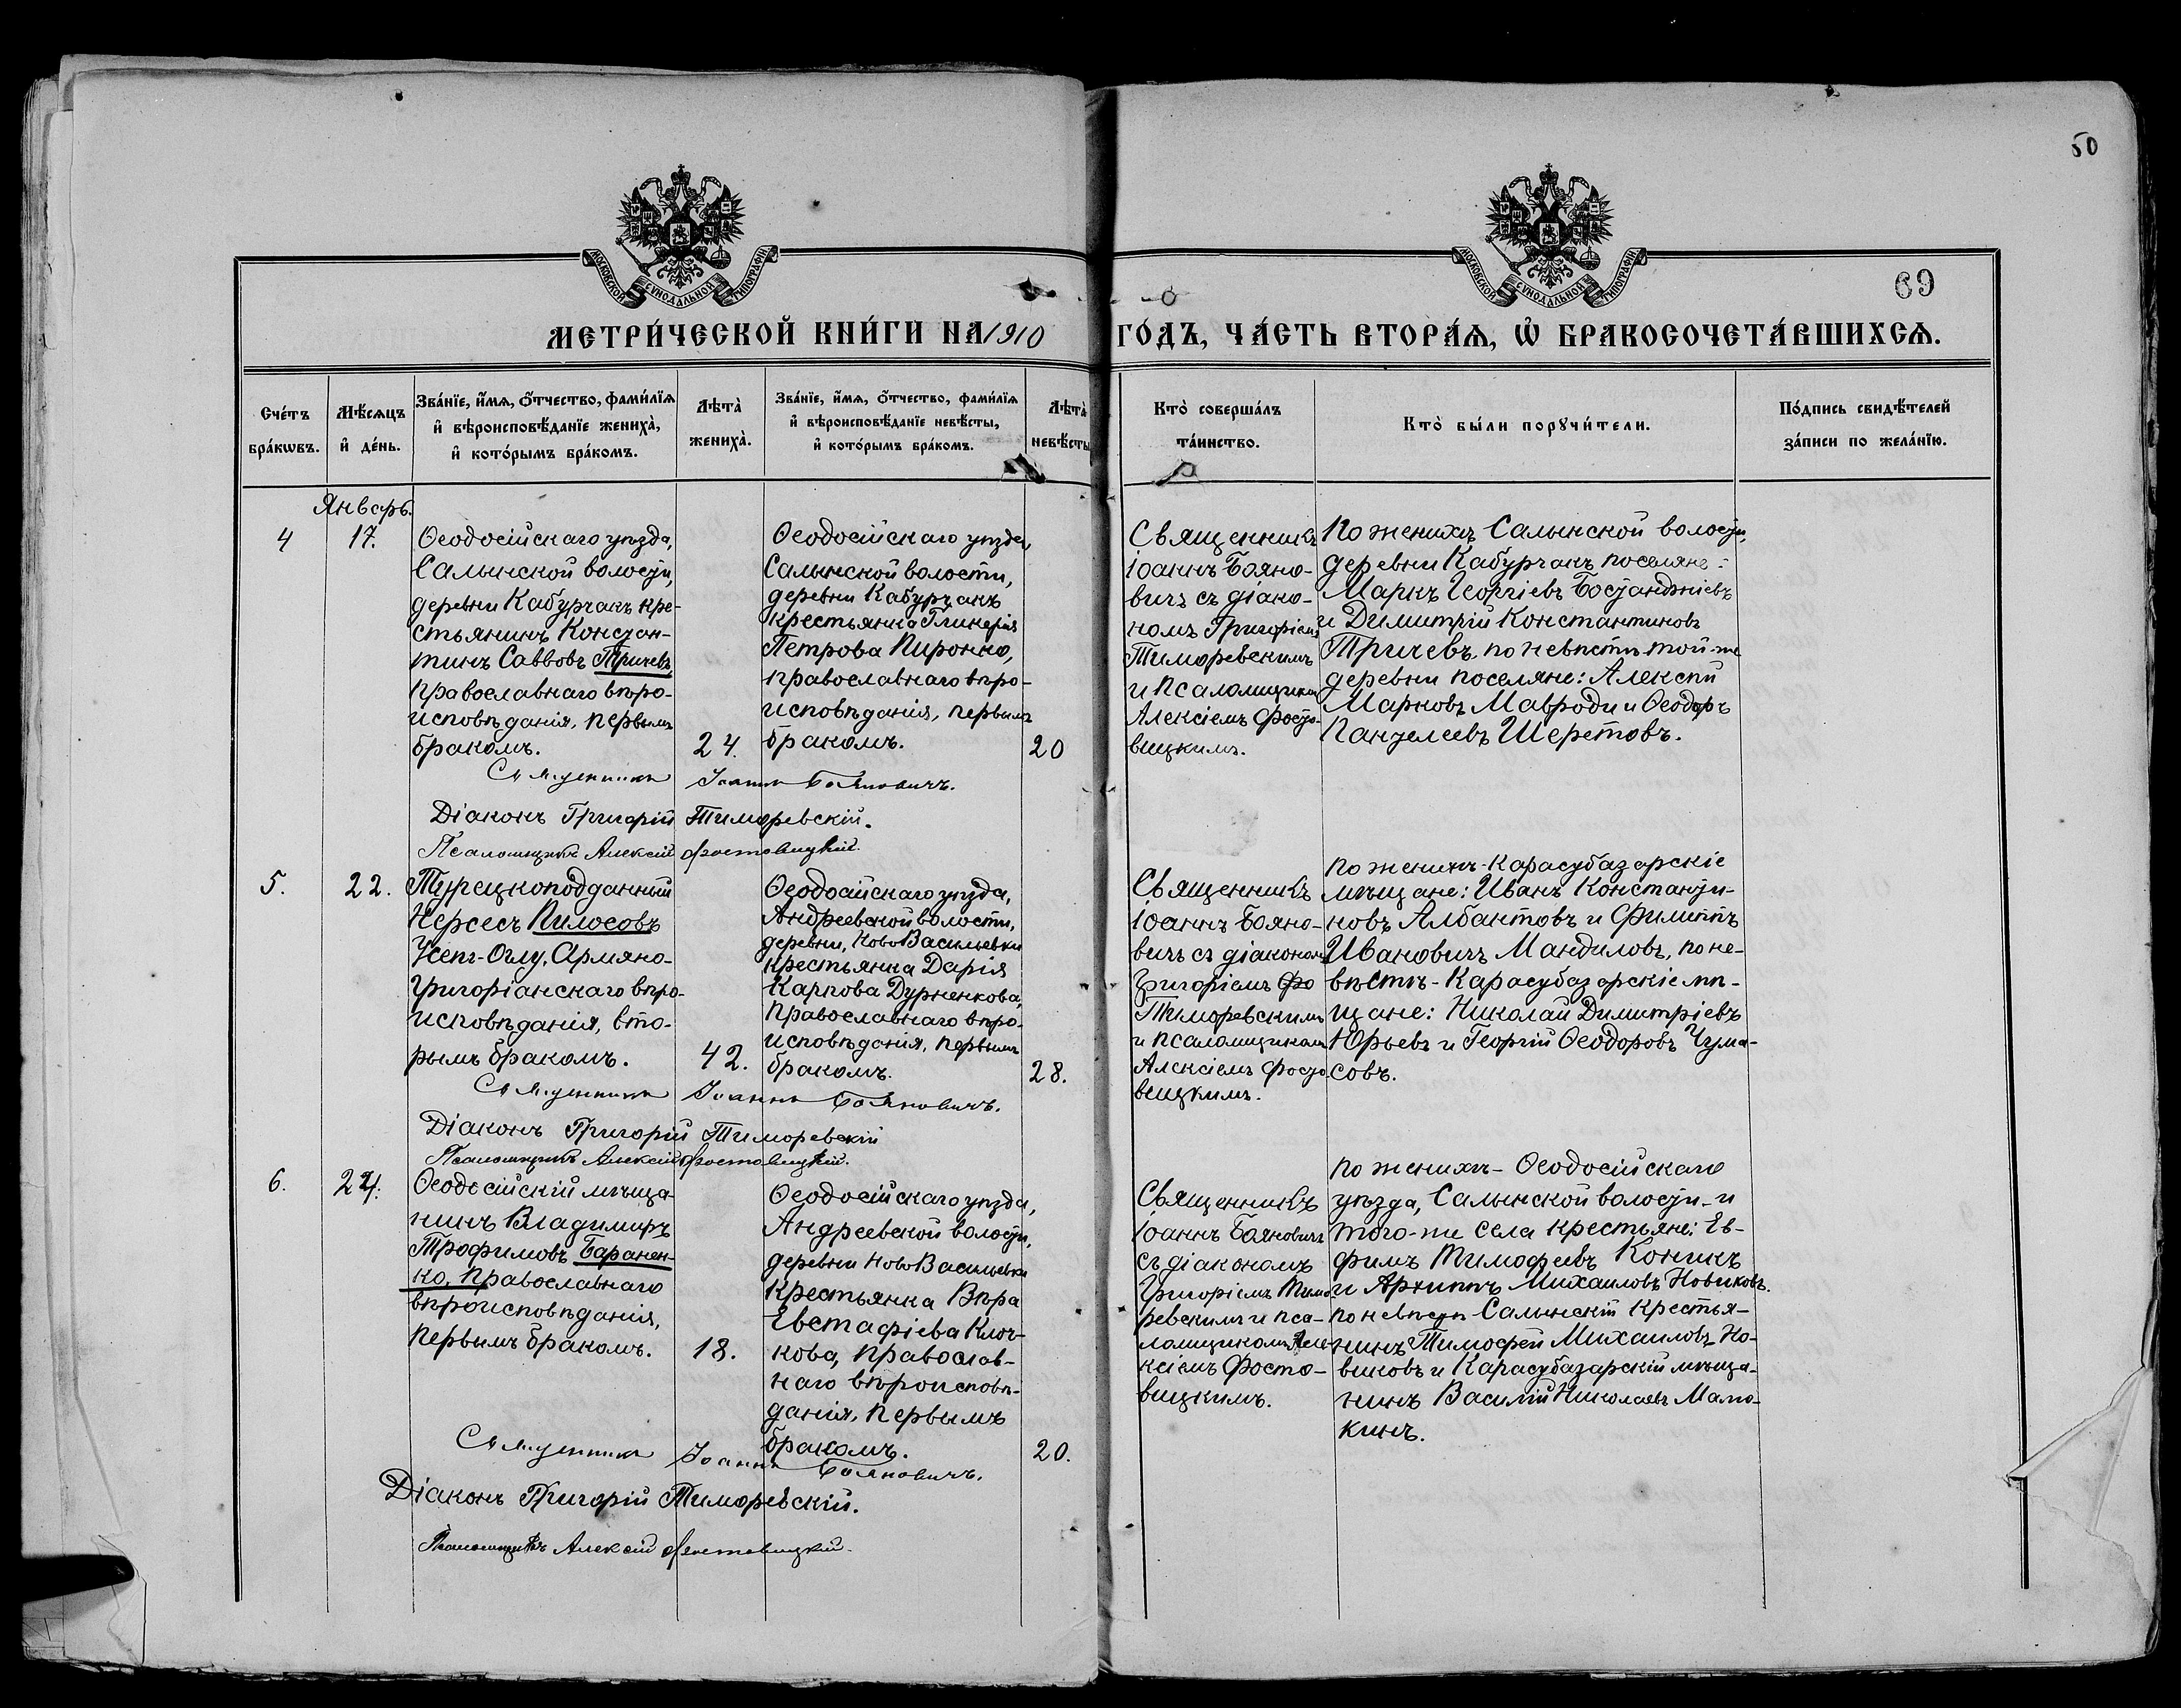 50
69
МОСКОВСКОЙ СѴНОДАЛЬНОЙ ТИПОГРАФІИ
МОСКОВСКОЙ СѴНОДАЛЬНОЙ ТИПОГРАФІИ
МЕТРИ́ЧЕСКОЙ КНИ́ГИ НА 1910 ГО́ДЪ, ЧА́СТЬ ВТОРА́Ѧ, Ѽ БРАКОСОЧЕТА́ВШИХСѦ.
Сче́тъ
бра́кѡвъ.
Мѣ́сѧцъ
и҆ де́нь.
Зва́нїе, и҆́мѧ, ѻ҆́тчество, фами́лїѧ
и҆ вѣроисповѣ́данїе жениха̀,
и҆ кото́рымъ бра́комъ.
Лѣта̀
жениха̀.
Зва́нїе, и҆́мѧ, ѻ҆́тчество, фами́лїѧ
и҆ вѣроисповѣ́данїе невѣ́сты,
и҆ кото́рымъ бра́комъ.
Лѣта̀
невѣ́сты
Кто̀ соверша́лъ
та́инство.
Кто̀ бы́ли порꙋчи́тели.
По́дпись свидѣ́телей
за́писи по жела́нїю.
Январь.
4
17.
Ѳеодосійскаго уѣзда,
Салынской волости,
деревни Кабурчакъ кре-
стьянинъ Констан-
тинъ Саввовъ Тричевъ
православнаго вѣро-
исповѣданія, первымъ
бракомъ.
24.
Ѳеодосійскаго уѣзда,
Салынской волости,
деревни Кабурчакъ
крестьянка Гликерія
Петрова Пиронко,
православнаго вѣро-
исповѣданія, первымъ
бракомъ.
20
Священникъ
Іоаннъ Бояно-
вичъ съ діако-
номъ Григоріемъ
Тиморевскимъ
и псаломщикомъ
Алексіемъ Фосто-
вицкимъ.
По женихѣ Салынской волости,
деревни Кабурчакъ поселяне:
Маркъ Георгіевъ Бостанджіевъ
и Димитрій Константиновъ
Тричевъ, по невѣстѣ той-же
деревни поселяне: Алексѣй
Марковъ Мавроди и Ѳеодоръ
Пантелеевъ Шеретовъ.
Священникъ Іоаннъ Бояновичъ.
Діаконъ Григорій Тиморевскій.
Псаломщикъ Алексій Фостовицкій.
5.
22.
Турецкоподданный
Нерсесъ Пилосовъ
Усепъ-Оглу, Армяно-
Григоріанскаго вѣро-
исповѣданія, вто-
рымъ бракомъ.
42.
Ѳеодосійскаго уѣзда,
Андреевской волости,
деревни, НовоВасильевки
крестьянка Дарія
Карпова Дурненкова,
православнаго вѣро-
исповѣданія, первымъ
бракомъ.
28.
Священникъ
Іоаннъ Бояно-
вичъ съ діакономъ
Григоріемъ Фо
Тиморевскимъ
и псаломщикомъ
Алексіемъ Фосто-
вицкимъ.
По женихѣ - Карасубазарскіе
мѣщане: Иванъ Константи-
новъ Албантовъ и Филиппъ
Ивановичъ Мандиловъ, по не-
вѣстѣ - Карасубазарскіе мѣ-
щане: Николай Димитріевъ
Юрьевъ и Георгій Ѳеодоровъ Чума-
совъ.
Священникъ Іоаннъ Бояновичъ.
Діаконъ Григорій Тиморевскій
Псаломщикъ Алексій Фостовицкій.
6.
24.
Ѳеодосійскій мѣща-
нинъ Владимиръ
Трофимовъ Баранен-
ко, православнаго
вѣроисповѣданія,
первымъ бракомъ.
18.
Ѳеодосійскаго уѣзда,
Андреевской волости,
деревни НовоВасильевки
крестьянка Вѣра
Евстафіева Клоч-
кова, православ-
наго вѣроисповѣ-
данія, первымъ
бракомъ.
20.
Священникъ
Іоаннъ Бояновичъ
съ діакономъ
Григоріемъ Тимо-
ревскимъ и пса-
ломщикомъ Але-
ксіемъ Фосто-
вицкимъ.
По женихѣ - Ѳеодосійскаго
уѣзда, Салынской волости - и
того-же села крестьяне: Ев-
фимъ Тимофеевъ Коникъ
и Архиппъ Михаиловъ Новиковъ.
по невѣстѣ Салынскій крестья-
нинъ Тимофей Михаиловъ Но-
виковъ и Карасубазарскій мѣща-
нинъ Василій Николаевъ Мамо-
кинъ.
Священникъ Іоаннъ Бояновичъ.
Діаконъ Григорій Тиморевскій.
Псаломщикъ Алексій Фостовицкій.